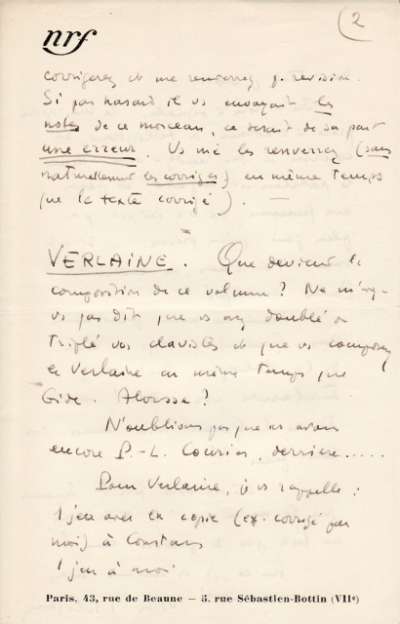 (2
nrf
corrigerez et me renverrez p. revision.
Si par hasard il vs envoyait les
notes de ce morceau, ce serait de sa part
une erreur. Vs me les renverrez (sans
naturellement les corriger) en même temps
que le texte corrigé). —
VERLAINE. Que devient la
composition de ce volume? Ne m'
vs pas dit que vs avez doublé ou
triplé vos clavistes et que vs composez
le Verlaine en même temps que
Gide.
N'oublions pas que ns avons
encore P.-L. Courier, derrière.....
Pour Verlaine, je vs rappelle:
1 jeu avec la copie (ex. corrigé par
moi) à Constans
1 jeu à moi
Paris, 43, rue de Beaune — 5, rue Sébastien-Bottin (VIIe)